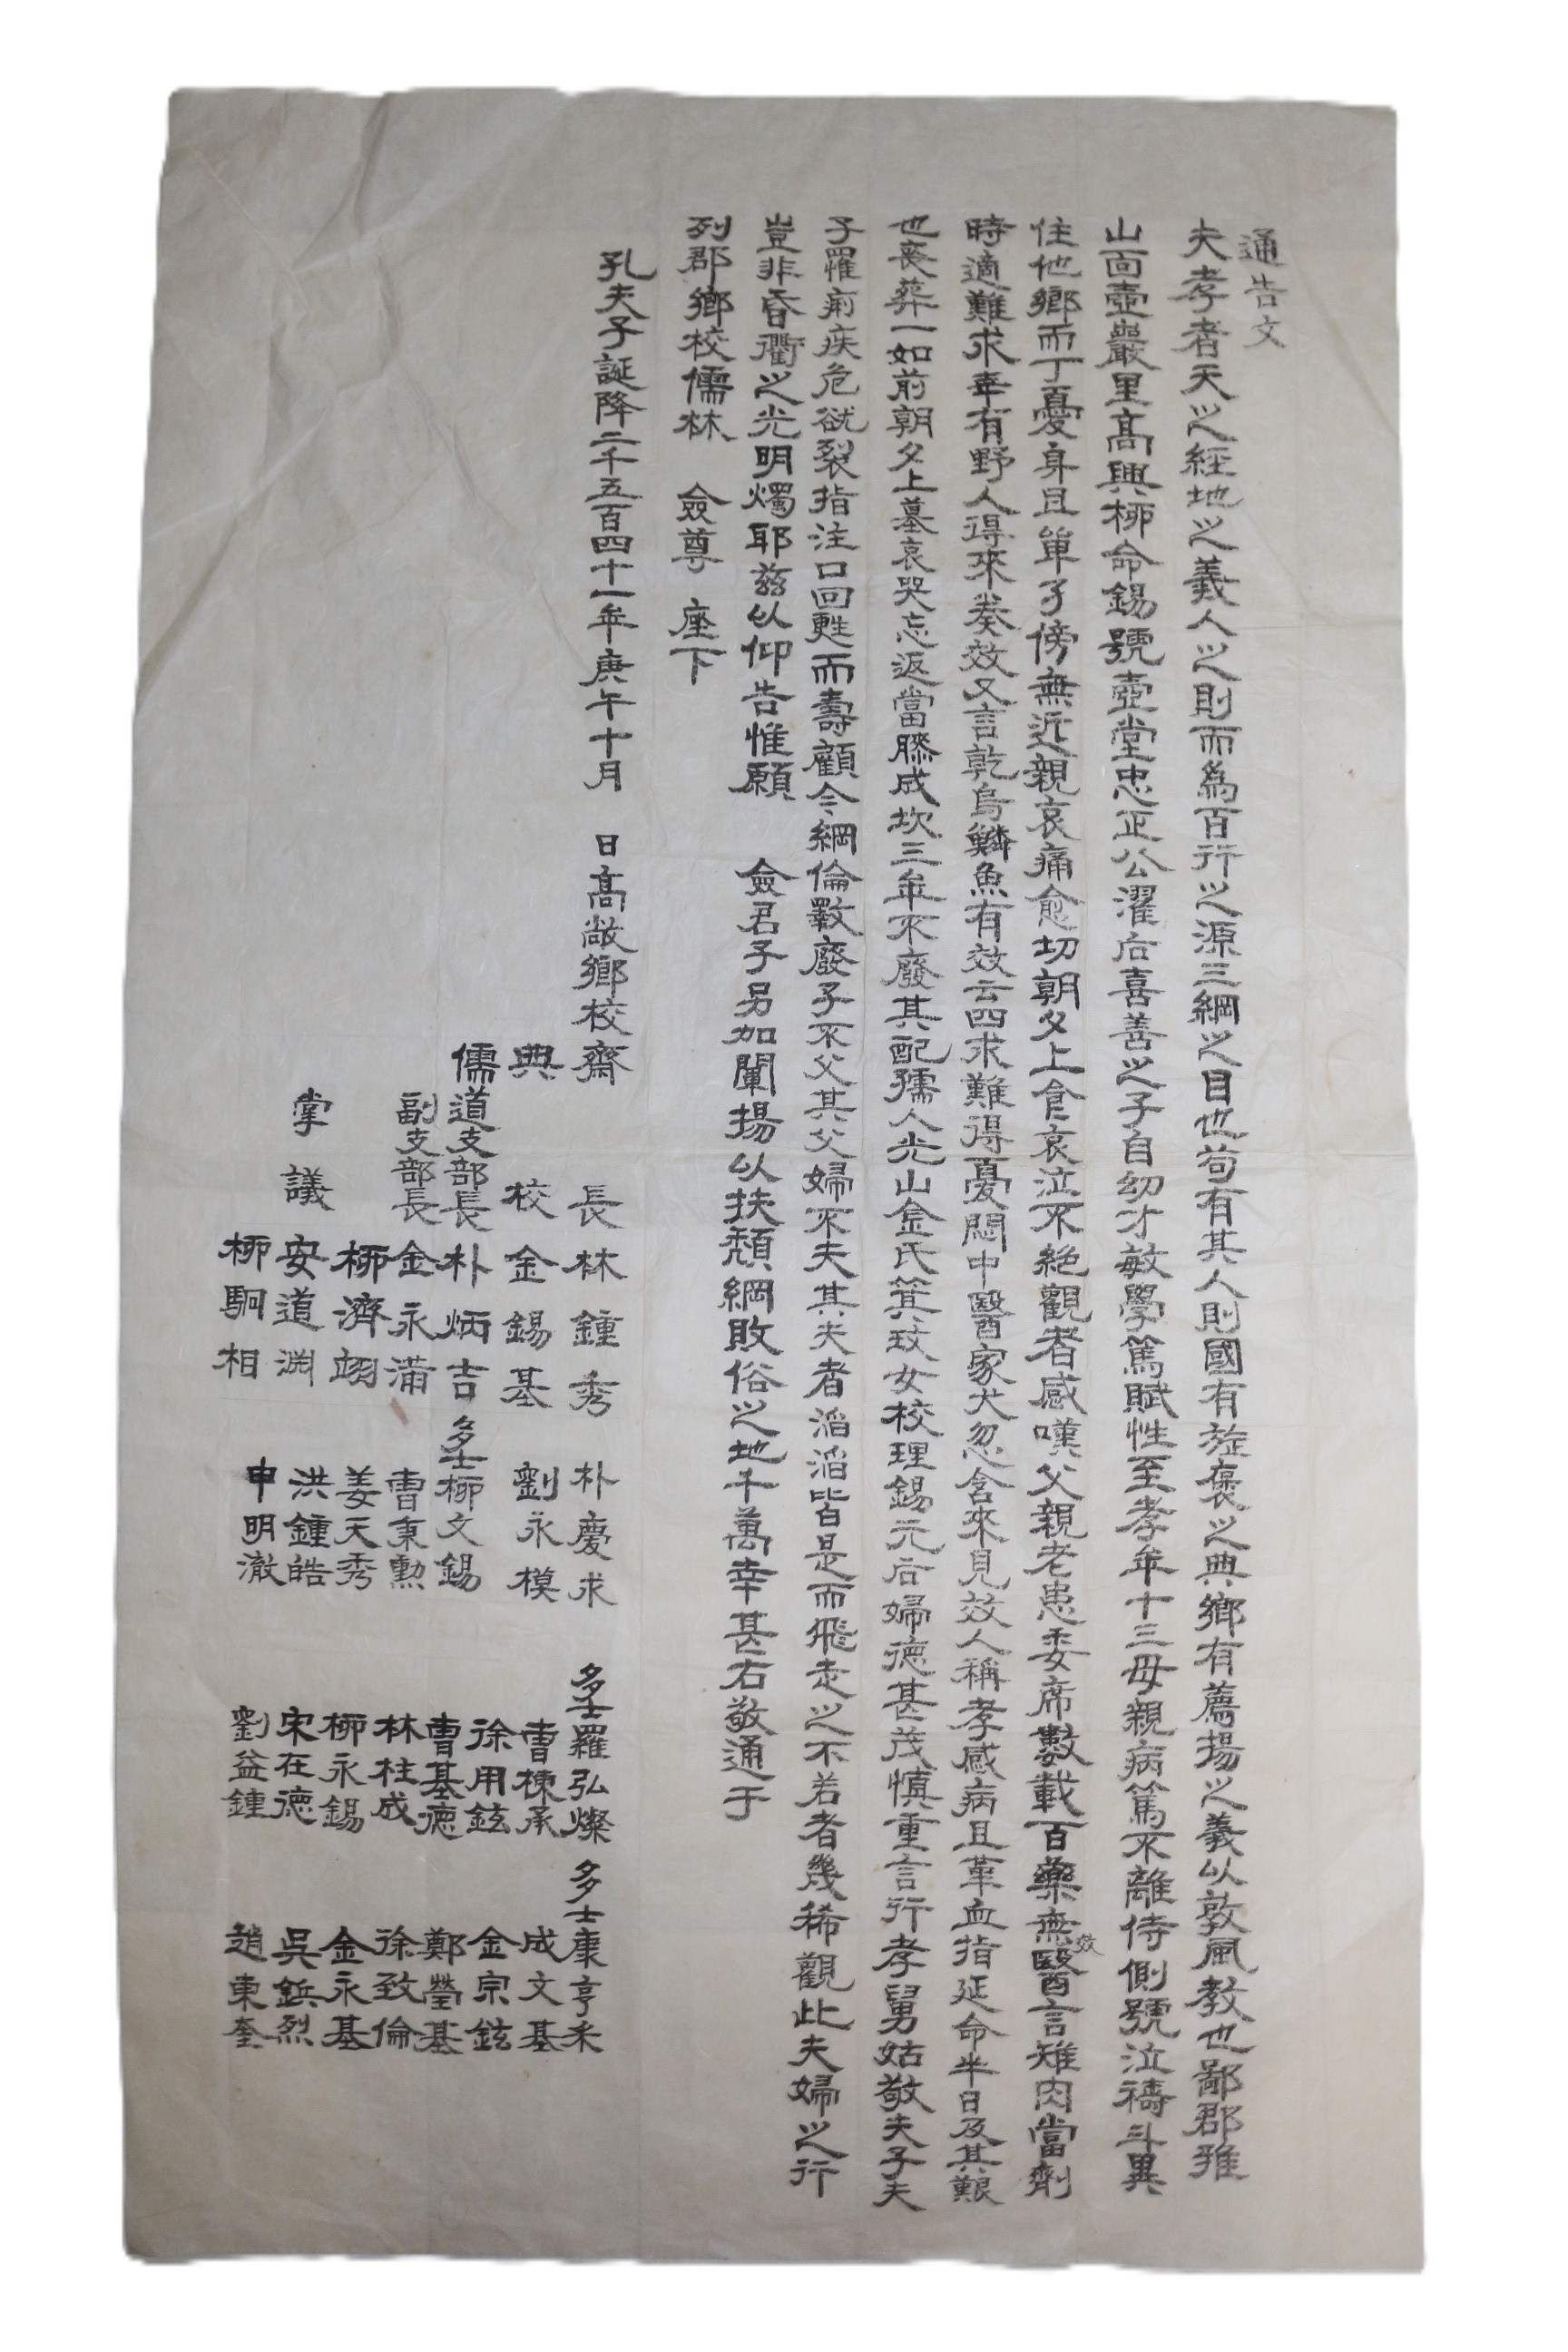 通告文
夫孝者天之經地之義人之則而爲百行之源三綱之目也苟有其人則國有旋褒之典鄉有薦揚之義以敦風敎也鄙郡雅
山面壺巖里高興柳命錫號壺堂忠正公濯后喜善之子自幼才敏學篤賦性至孝年十三母親病篤不離侍側號泣禱斗異
住他鄉而丁憂身且單孑傍無近親哀痛愈切朝夕上食哀泣不絕觀者感嘆父親老患委席數載百藥無效醫言雉肉當劑
時適難求幸有野人得來奏效又言乾烏鱗魚有效云四求難得憂悶中醫家犬忽含來見效人稱孝感病且革血指延命半日及其艱
也喪葬一如前朝夕上墓哀哭忘返當膝成坎三年不廢其配孺人光山金氏箕玟女校理錫元后婦德甚茂愼重言行孝舅姑敬夫子夫
子罹痾疾危欲裂指注口回甦而壽顧今綱倫斁廢子不父其父婦不夫其夫者滔滔皆是而飛走之不若者幾稀觀此夫婦之行
豈非昏衢之光明燭耶玆以仰告惟願 僉君子另加闡揚以扶頹綱敗俗之地千萬幸甚右敬通于
列郡鄉校儒林 僉尊 座下
孔夫子誕降二千五百四十一年庚午十月 日高敞鄉校齋長林鍾秀 朴慶求 多士羅弘燦 多士康亨釆
典校金錫基 劉永模 曺棟承 成文基
儒道支部長朴炳吉 多士柳文錫 徐用鉉 金宗鉉
副支部長金永蒲 曺秉勳 曺基德 鄭瑩基
柳濟翊 姜天秀 林柱成 徐致倫
掌議安道淵 洪鍾皓 柳永錫 金永基
柳駉相 申明澈 宋在德 吳鋲烈
劉益鍾 趙東奎